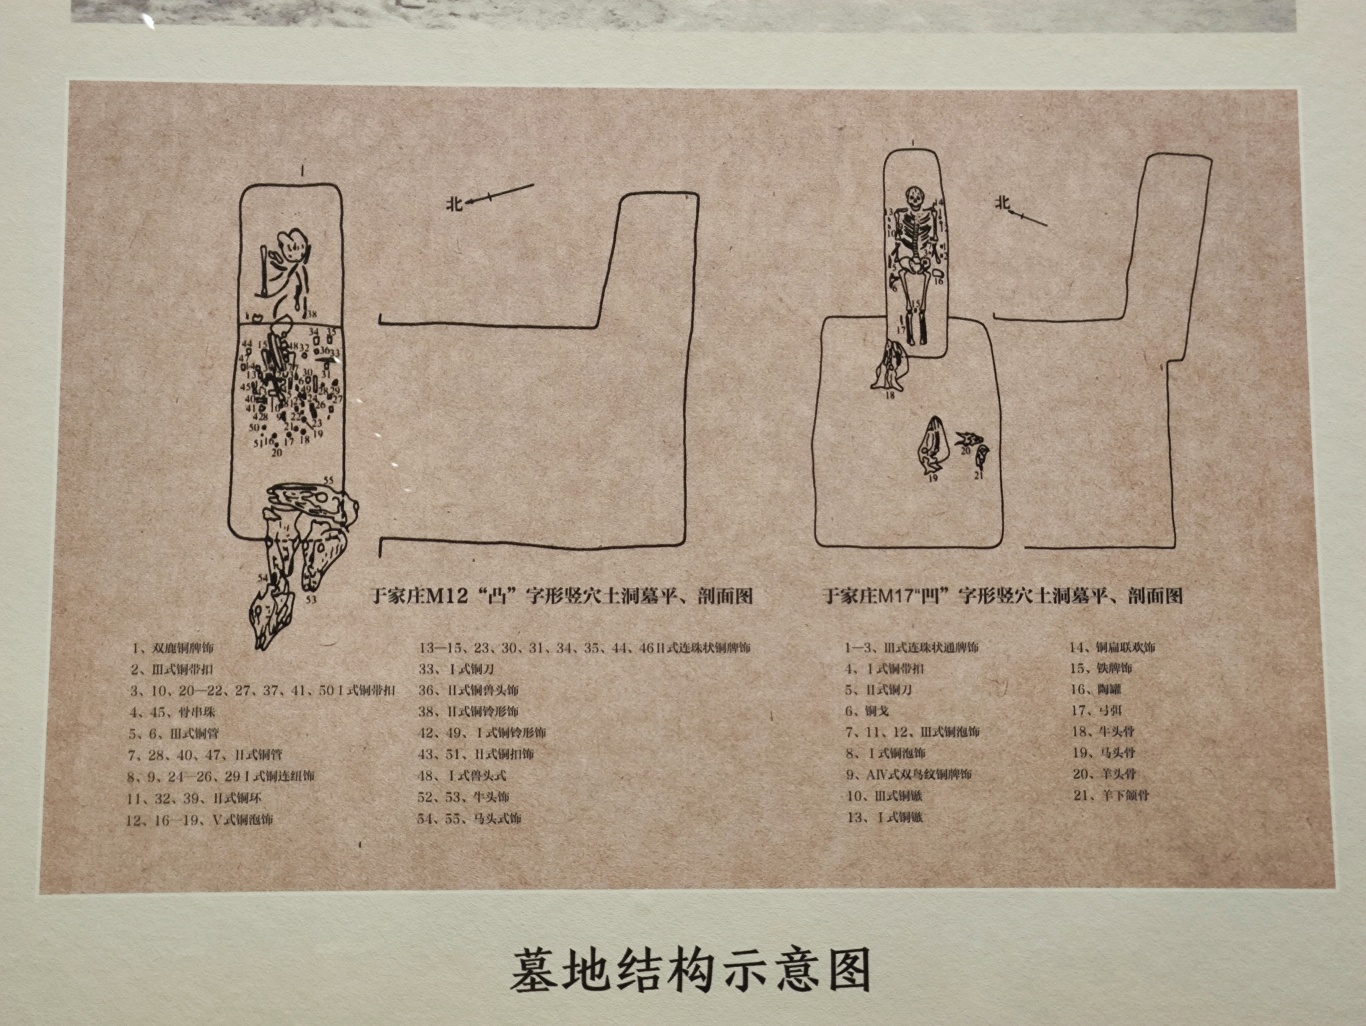 北
北
于家庄M12“凸”字形竖穴土洞墓平、剖面图
1、双鹿铜牌饰
2、Ⅲ式铜带扣
3、10、20—22、27、37、41、50Ⅰ式铜带扣
4、45、骨串珠
5、6、Ⅲ式铜管
7、28、40、47、Ⅱ式铜管
8、9、24—26、29Ⅰ式铜连纽饰
11、32、39、Ⅱ式铜环
12、16—19、Ⅴ式铜泡饰
13—15、23、30、31、34、35、44、46Ⅱ式连珠状铜牌饰
33、Ⅰ式铜刀
36、Ⅱ式铜兽头饰
38、Ⅱ式铜铃形饰
42、49、Ⅰ式铜铃形饰
43、51、Ⅱ式铜扣饰
48、Ⅰ式兽头式
52、53、牛头饰
54、55、马头式饰
于家庄M17“凹”字形竖穴土洞墓平、剖面图
1—3、Ⅲ式连珠状通牌饰
4、Ⅰ式铜带扣
5、Ⅱ式铜刀
6、铜戈
7、11、12、Ⅲ式铜泡饰
8、Ⅰ式铜泡饰
9、AⅣ式双鸟纹铜牌饰
10、Ⅲ式铜镞
13、Ⅰ式铜镞
14、铜扁联欢饰
15、铁牌饰
16、陶罐
17、弓弭
18、牛头骨
19、马头骨
20、羊头骨
21、羊下颌骨
墓地结构示意图